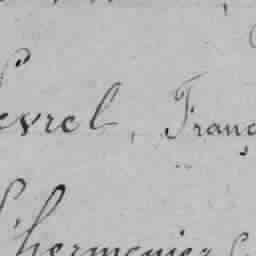 evrel, Franç
hermenier